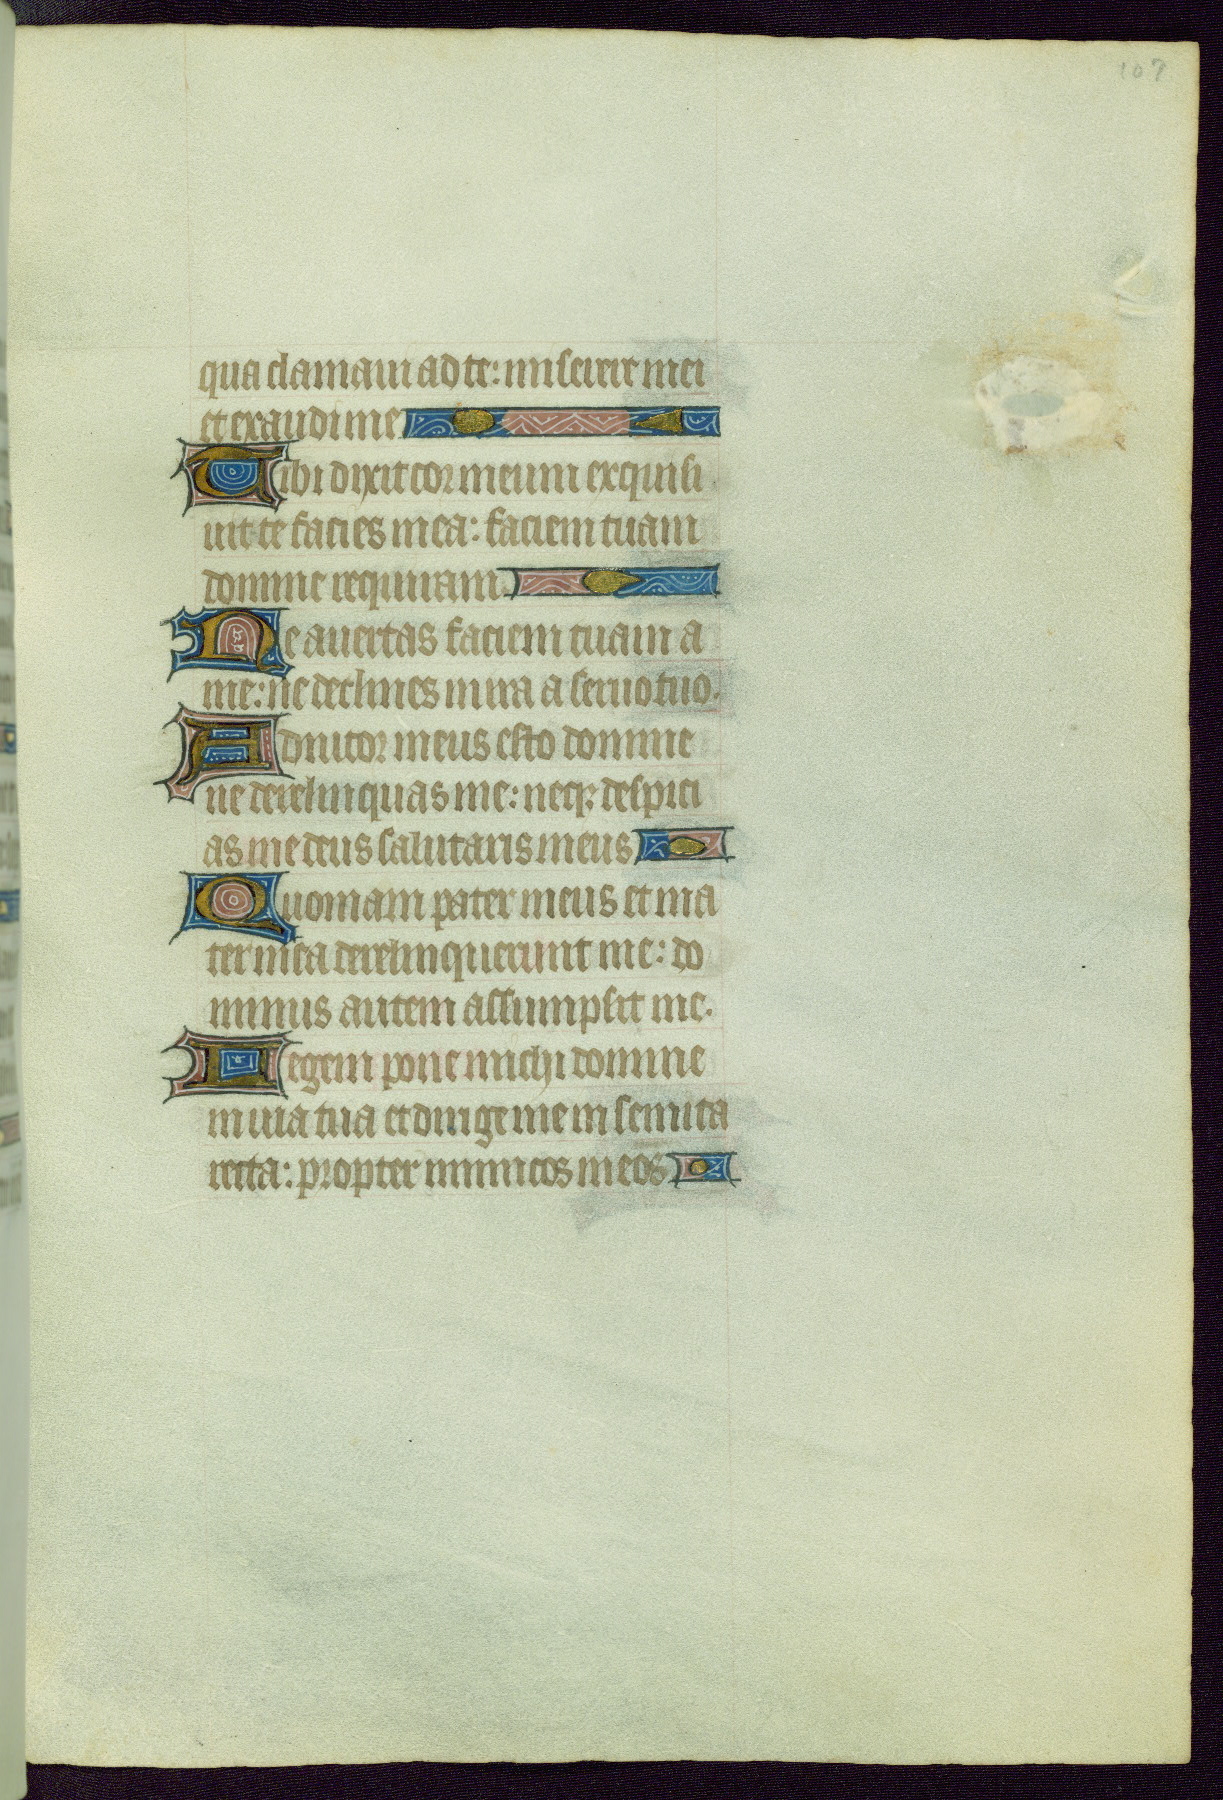 107
qua clamaui ad te: miserere mei
et exaudi me
Tibi dixit cor meum exquisi
uit te facies mea: faciem tuam
domine requiram.
Ne auertas faciem tuam a
me: ne declines in ira a seruo tuo.
Adiutor meus esto domine
ne derelinquas me: neqꝫ despici
as me deus salutaris meus
Quoniam pater meus et ma
ter mea derelinquerunt me: do
minus autem assumpsit me.
Legem pone michi domine
in uia tua et dirige me in semita
recta: propter inimicos meos